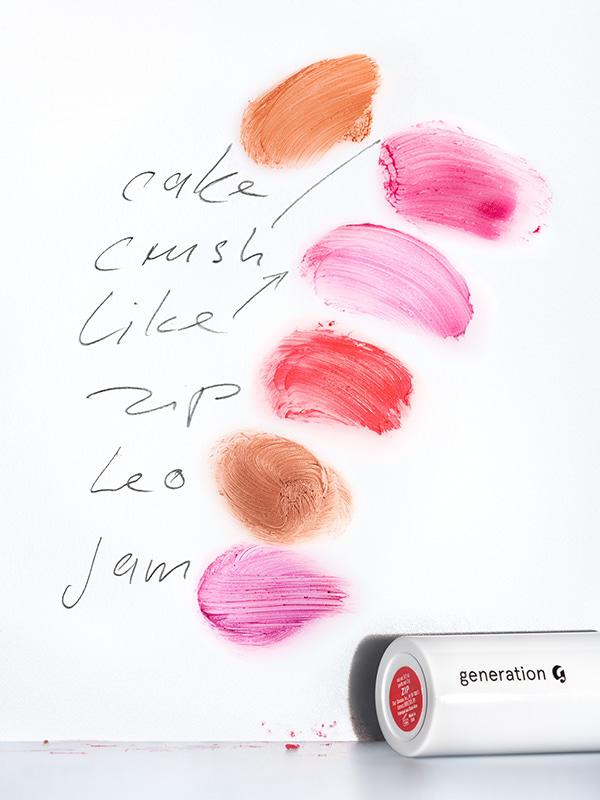 cake
crush
like
zip
leo
jam
generation G
ZIP